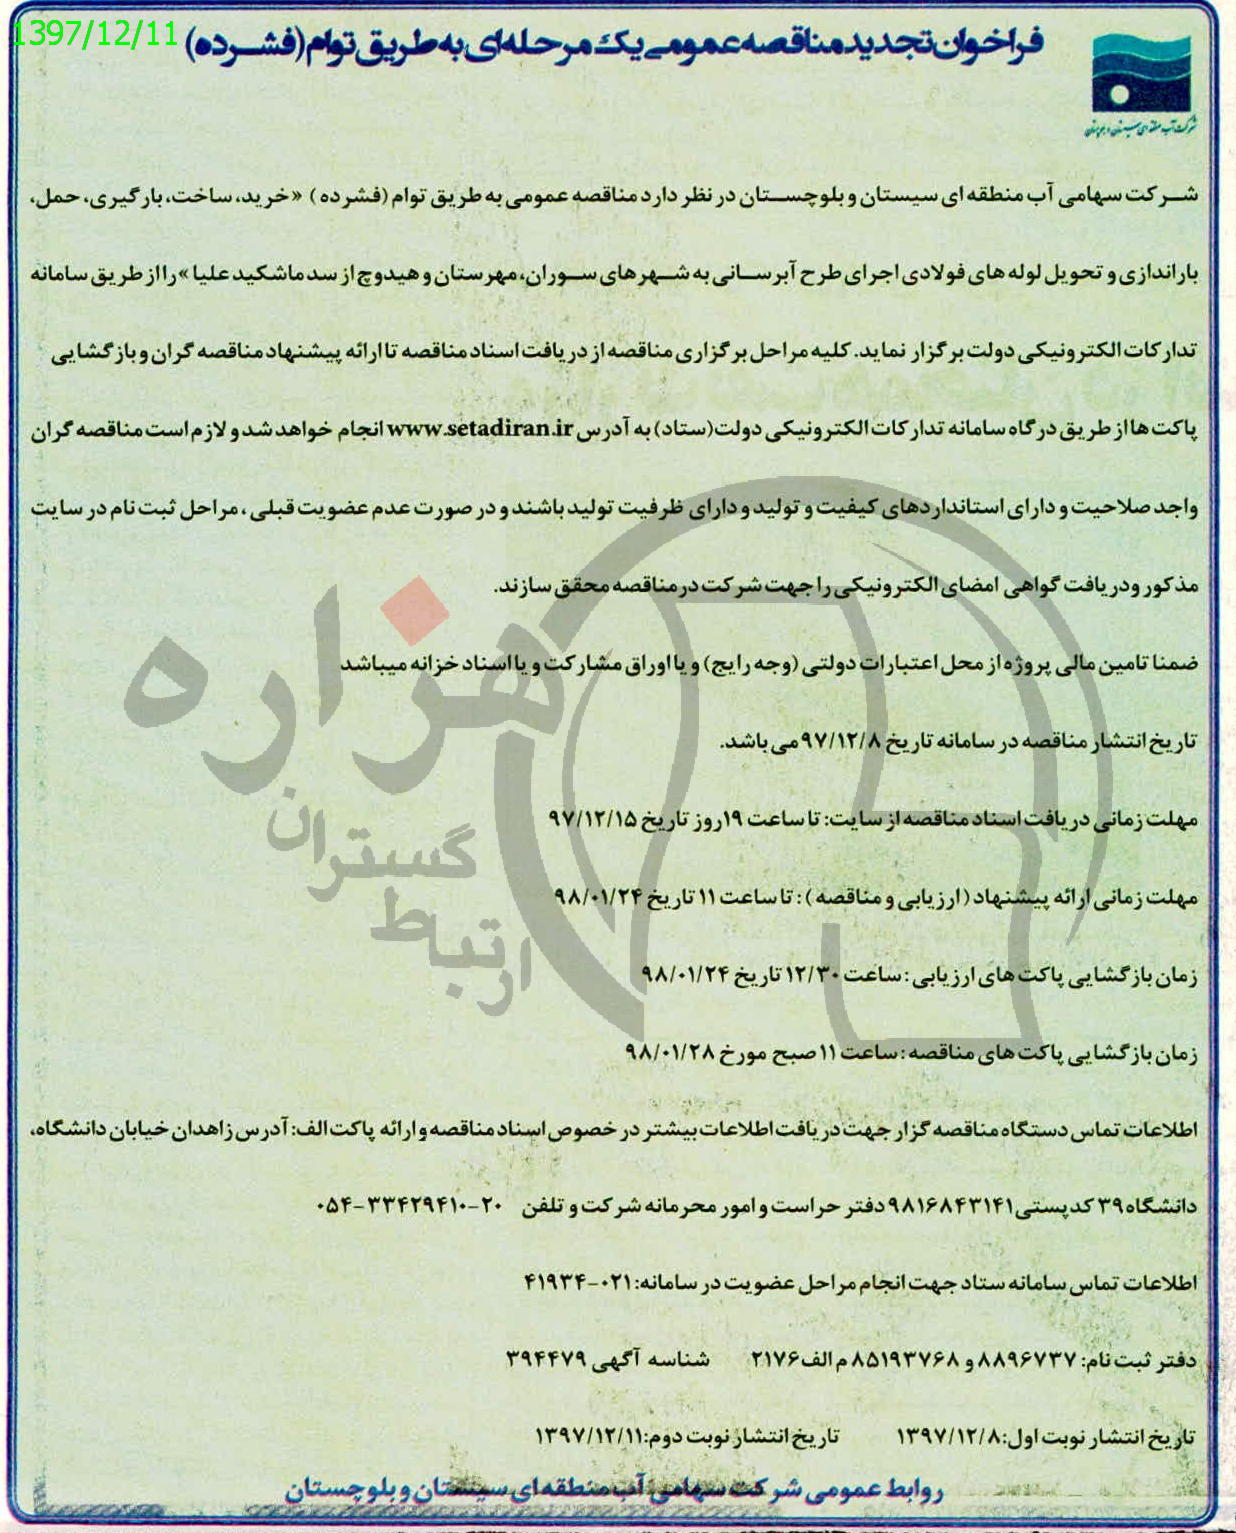 1397/12/11
فراخوان تجدید مناقصه عمومی یک مرحله‌ای به طریق توام (فشرده)
شرکت آب منطقه‌ای سیستان و بلوچستان
شرکت سهامی آب منطقه ای سیستان و بلوچستان در نظر دارد مناقصه عمومی به طریق توام (فشرده) «خرید، ساخت، بارگیری، حمل،
باراندازی و تحویل لوله های فولادی اجرای طرح آبرسانی به شهرهای سوران، مهرستان و هیدوچ از سد ماشکید علیا» را از طریق سامانه
تدارکات الکترونیکی دولت برگزار نماید. کلیه مراحل برگزاری مناقصه از دریافت اسناد مناقصه تا ارائه پیشنهاد مناقصه گران و بازگشایی
پاکت ها از طریق درگاه سامانه تدارکات الکترونیکی دولت (ستاد) به آدرس www.setadiran.ir انجام خواهد شد و لازم است مناقصه گران
واجد صلاحیت و دارای استانداردهای کیفیت و تولید و دارای ظرفیت تولید باشند و در صورت عدم عضویت قبلی، مراحل ثبت نام در سایت
مذکور ودریافت گواهی امضای الکترونیکی را جهت شرکت در مناقصه محقق سازند.
ضمنا تامین مالی پروژه از محل اعتبارات دولتی (وجه رایج) و یا اوراق مشارکت و یا اسناد خزانه میباشد
تاریخ انتشار مناقصه در سامانه تاریخ ۹۷/۱۲/۸ می باشد.
مهلت زمانی دریافت اسناد مناقصه از سایت: تا ساعت ۱۹ روز تاریخ ۹۷/۱۲/۱۵
مهلت زمانی ارائه پیشنهاد (ارزیابی و مناقصه): تا ساعت ۱۱ تاریخ ۹۸/۰۱/۲۴
زمان بازگشایی پاکت های ارزیابی: ساعت ۱۲/۳۰ تاریخ ۹۸/۰۱/۲۴
زمان بازگشایی پاکت های مناقصه: ساعت ۱۱ صبح مورخ ۹۸/۰۱/۲۸
اطلاعات تماس دستگاه مناقصه گزار جهت دریافت اطلاعات بیشتر در خصوص اسناد مناقصه و ارائه پاکت الف: آدرس زاهدان خیابان دانشگاه،
دانشگاه ۳۹ کدپستی ۹۸۱۶۸۴۳۱۴۱ دفتر حراست و امور محرمانه شرکت و تلفن ۲۰-۳۳۴۲۹۴۱۰-۰۵۴
اطلاعات تماس سامانه ستاد جهت انجام مراحل عضویت در سامانه: ۰۲۱-۴۱۹۳۴
دفتر ثبت نام: ۸۸۹۶۷۳۷ و ۸۵۱۹۳۷۶۸ م الف ۲۱۷۶ شناسه آگهی ۳۹۴۴۷۹
تاریخ انتشار نوبت اول: ۱۳۹۷/۱۲/۸ تاریخ انتشار نوبت دوم: ۱۳۹۷/۱۲/۱۱
روابط عمومی شرکت سهامی آب منطقه ای سیستان و بلوچستان
هزاره
گستران
ارتباط